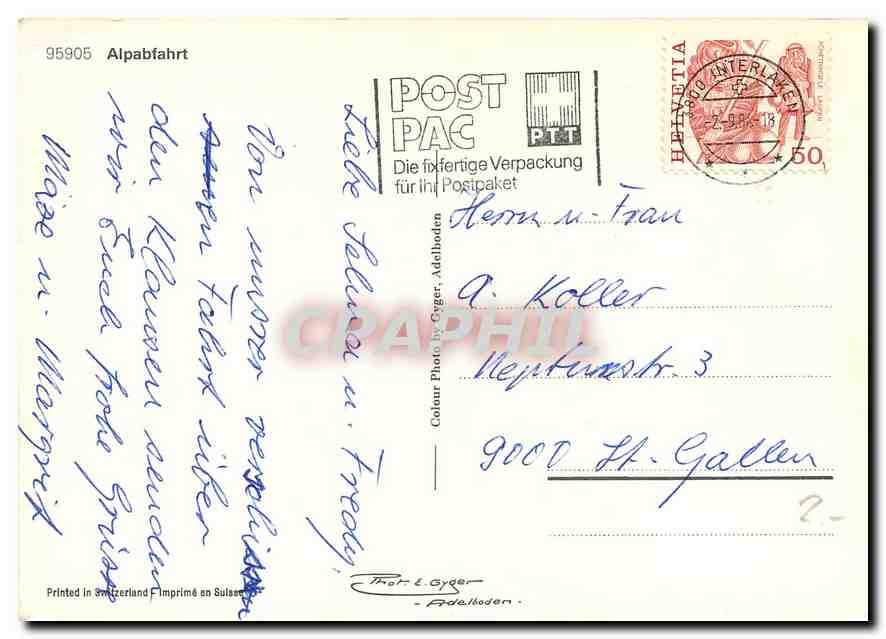 95905 Alpabfahrt
POST
PAC
PTT
Die fixfertige Verpackung
für Ihr Postpaket
HELVETIA
50
3800 INTERLAKEN
Liebe u. Fredy,
Von unserer
Fahrt über
den Klausen senden
wir Euch frohe Grüsse
u. Margrit
Herrn u. Frau
A. Koller
Neptunstr. 3
9000 St. Gallen
2.-
Colour Photo by Gyger, Adelboden
CPAPHIL
Printed in Switzerland - Imprimé en Suisse
Phot. E. Gyger
- Adelboden -